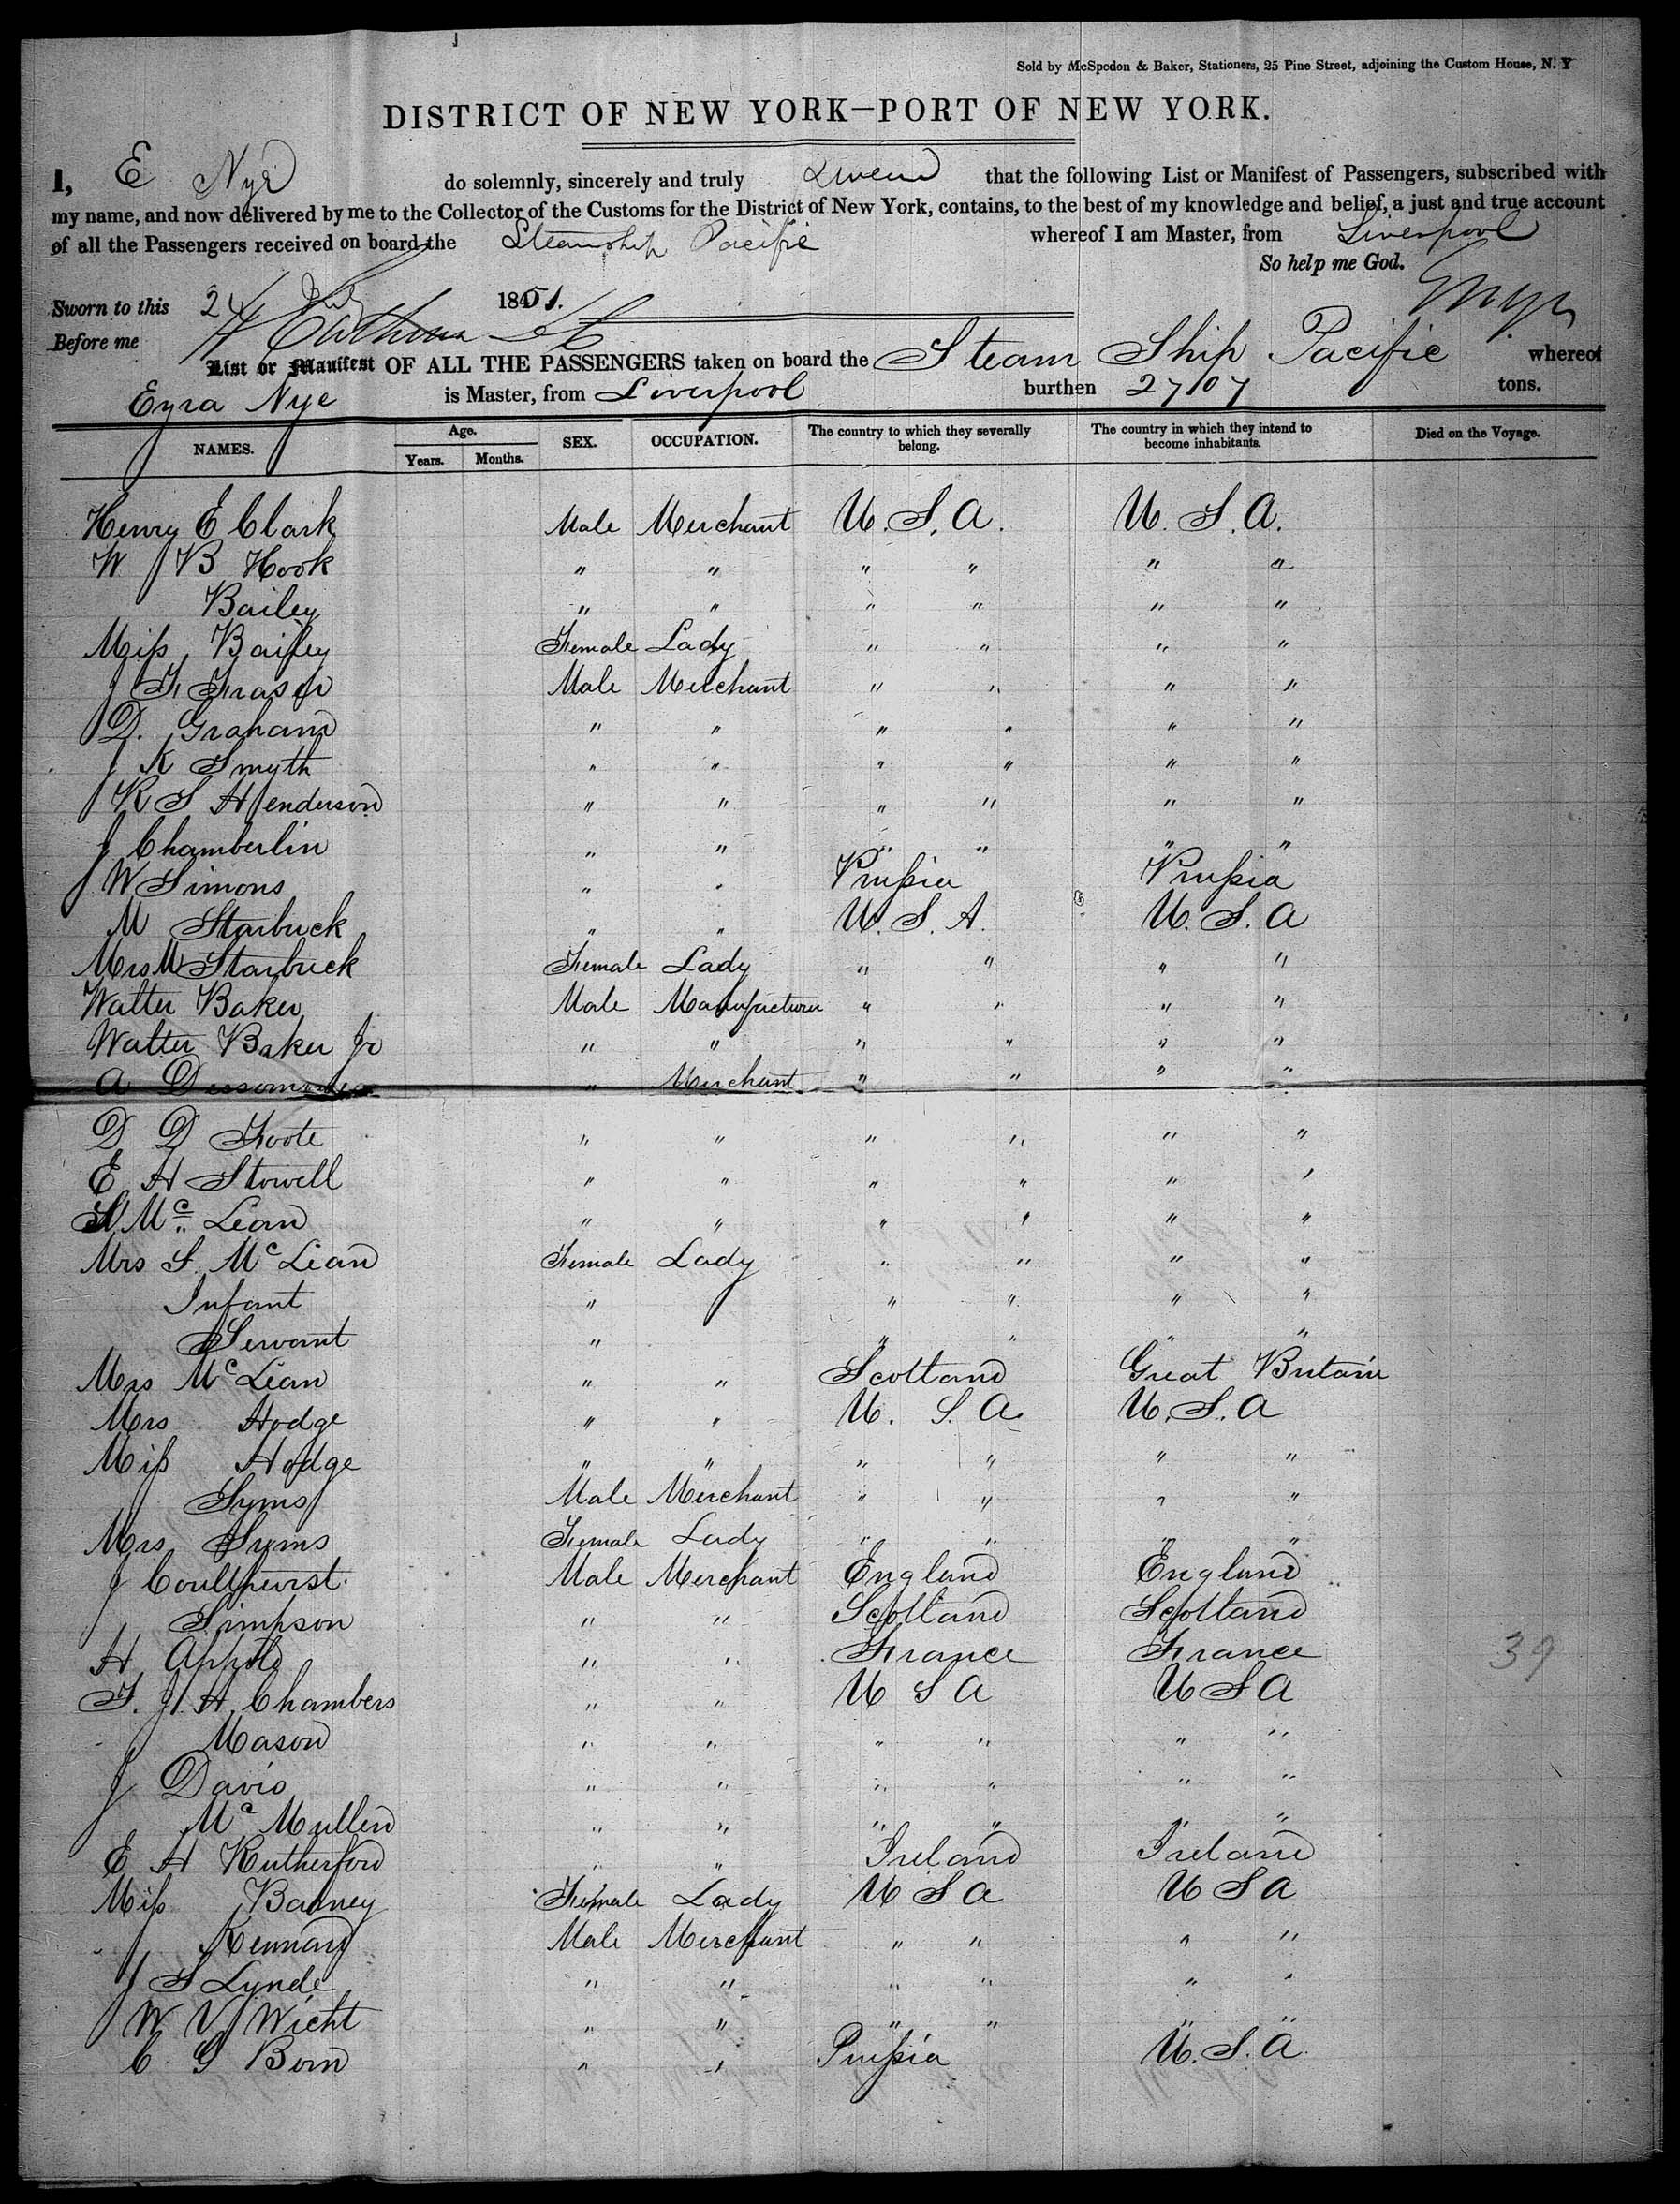 Sold by McSpedon & Baker, Stationers, 25 Pine Street, adjoining the Custom House, N. Y
DISTRICT OF NEW YORK—PORT OF NEW YORK.
I, E Nye do solemnly, sincerely and truly Swear that the following List or Manifest of Passengers, subscribed with
my name, and now delivered by me to the Collector of the Customs for the District of New York, contains, to the best of my knowledge and belief, a just and true account
of all the Passengers received on board the Steamship Pacific whereof I am Master, from Liverpool
So help me God.
Sworn to this 24 July 1851. E Nye
Before me
List or Manifest OF ALL THE PASSENGERS taken on board the Steam Ship Pacific whereof
Ezra Nye is Master, from Liverpool burthen 2707 tons.
NAMES. Age. Years. Months. SEX. OCCUPATION. The country to which they severally belong. The country in which they intend to become inhabitants. Died on the Voyage.
Henry E Clark Male Merchant U. S. A. U. S. A.
W B Hook " " " " " "
Bailey " " " " " "
Miss Bailey Female Lady " " " "
J F Fraser Male Merchant " " " "
D. Graham " " " " " "
J K Smyth " " " " " "
R S Henderson " " " " " "
J Chamberlin " " " " " "
W Simons " " Prussia Prussia
M Starbuck " " U. S. A. U. S. A
Mrs M Starbuck Female Lady " " " "
Walter Baker Male Manufacturer " " " "
Walter Baker Jr " " " " " "
A " Merchant " " " "
D D Foote " " " " " "
E H Stowell " " " " " "
S Mc Lean " " " " " "
Mrs S. Mc Lean Female Lady " " " "
Infant " " " " "
Servant " " " " "
Mrs Mc Lean " " Scotland Great Britain
Mrs Hodge " " U. S. A. U. S. A
Miss Hodge " " " " " "
Syms Male Merchant " " " "
Mrs Syms Female Lady " " " "
J Coulthurst Male Merchant England England
Simpson " " Scotland Scotland
H " " France France 39
T. J. A. Chambers " " U S A U S A
Mason " " " " " "
J Davis " " " " " "
Mc Mullen " " " " " "
E H Rutherford " " Ireland Ireland
Miss Barney Female Lady U S A U S A
Kennard Male Merchant " " " "
J S Lynde " " " " " "
W V Wicht " " " " " "
C G Born " " Prussia U. S. A.